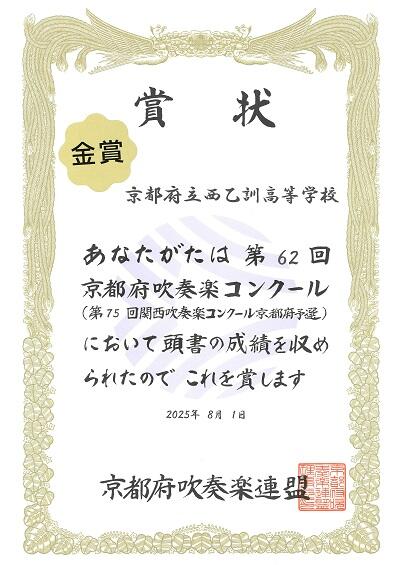 賞状
金賞
京都府立西乙訓高等学校
あなたがたは 第 62 回
京都府吹奏楽コンクール
(第 75 回関西吹奏楽コンクール京都府予選)
において頭書の成績を収め
られたので これを賞します
2025年 8月 1日
京都府吹奏楽連盟